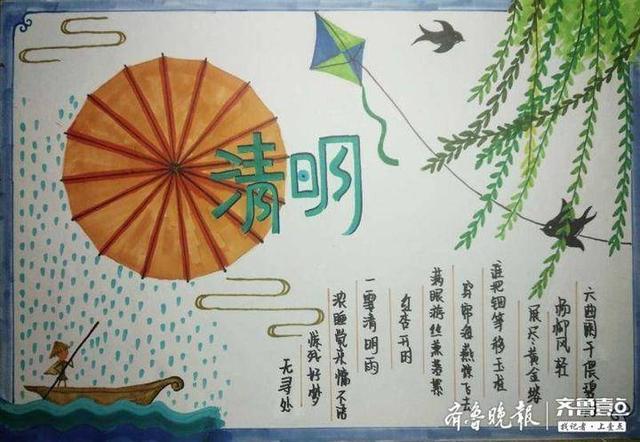 清明
六曲阑干偎碧
杨柳风轻
展尽黄金缕
谁把钿筝移玉柱
穿帘海燕惊飞去
满眼游丝兼落絮
红杏开时
一霎清明雨
浓睡觉来慵不语
惊残好梦
无寻处
齐鲁晚报
齐鲁壹点
找记者·上壹点